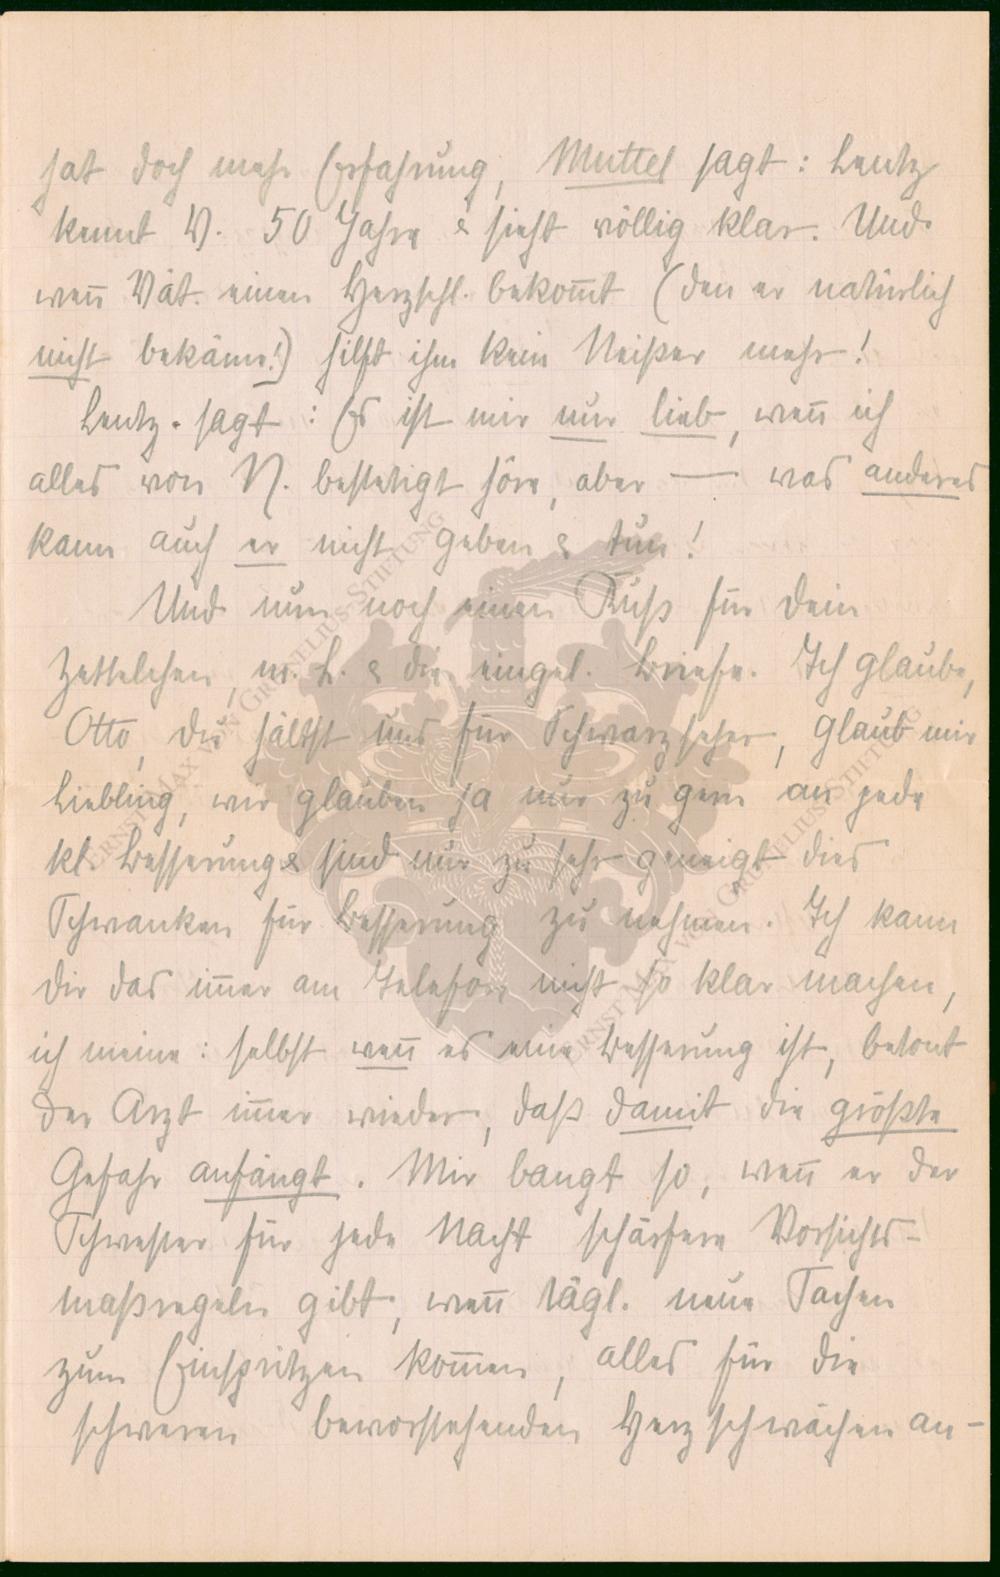 hat doch mehr Erfahrung, Muttel sagt: Lentz
kennt V. 50 Jahre & sieht völlig klar. Und
weñ Vat. einen Herzschl. bekom̃t (den er natürlich
nicht bekäme!) hilft ihm kein Neißer mehr!
Lentz. sagt: Es ist mir nur lieb, weñ ich
alles von N. bestetigt höre, aber — was anderes
kann auch er nicht geben & tun!
Und nun noch einen Kuß für Dein
Zettelchen, m. L. & die eingel. Briefe. Ich glaube,
Otto, du hältst uns für Schwarzseher, glaub mir
Liebling, wir glauben ja nur zu gern an jede
kl. Besserung & sind nur zu sehr geneigt dies
Schwanken für Besserung zu nehmen. Ich kann
dir das im̃er am Telefon nicht so klar machen,
ich meine: selbst weñ es eine Besserung ist, betont
der Arzt im̃er wieder, daß damit die größte
Gefahr anfängt. Mir bangt so, weñ er der
Schwester für jede Nacht schärfere Vorsichts-
maßregeln gibt, weñ tägl. neue Sachen
zum Einspritzen kom̃en, alles für die
schweren bevorstehenden Herzschwächen an-
ERNST MAX VON GRENELIUS STIFTUNG
ERNST MAX VON GRENELIUS STIFTUNG